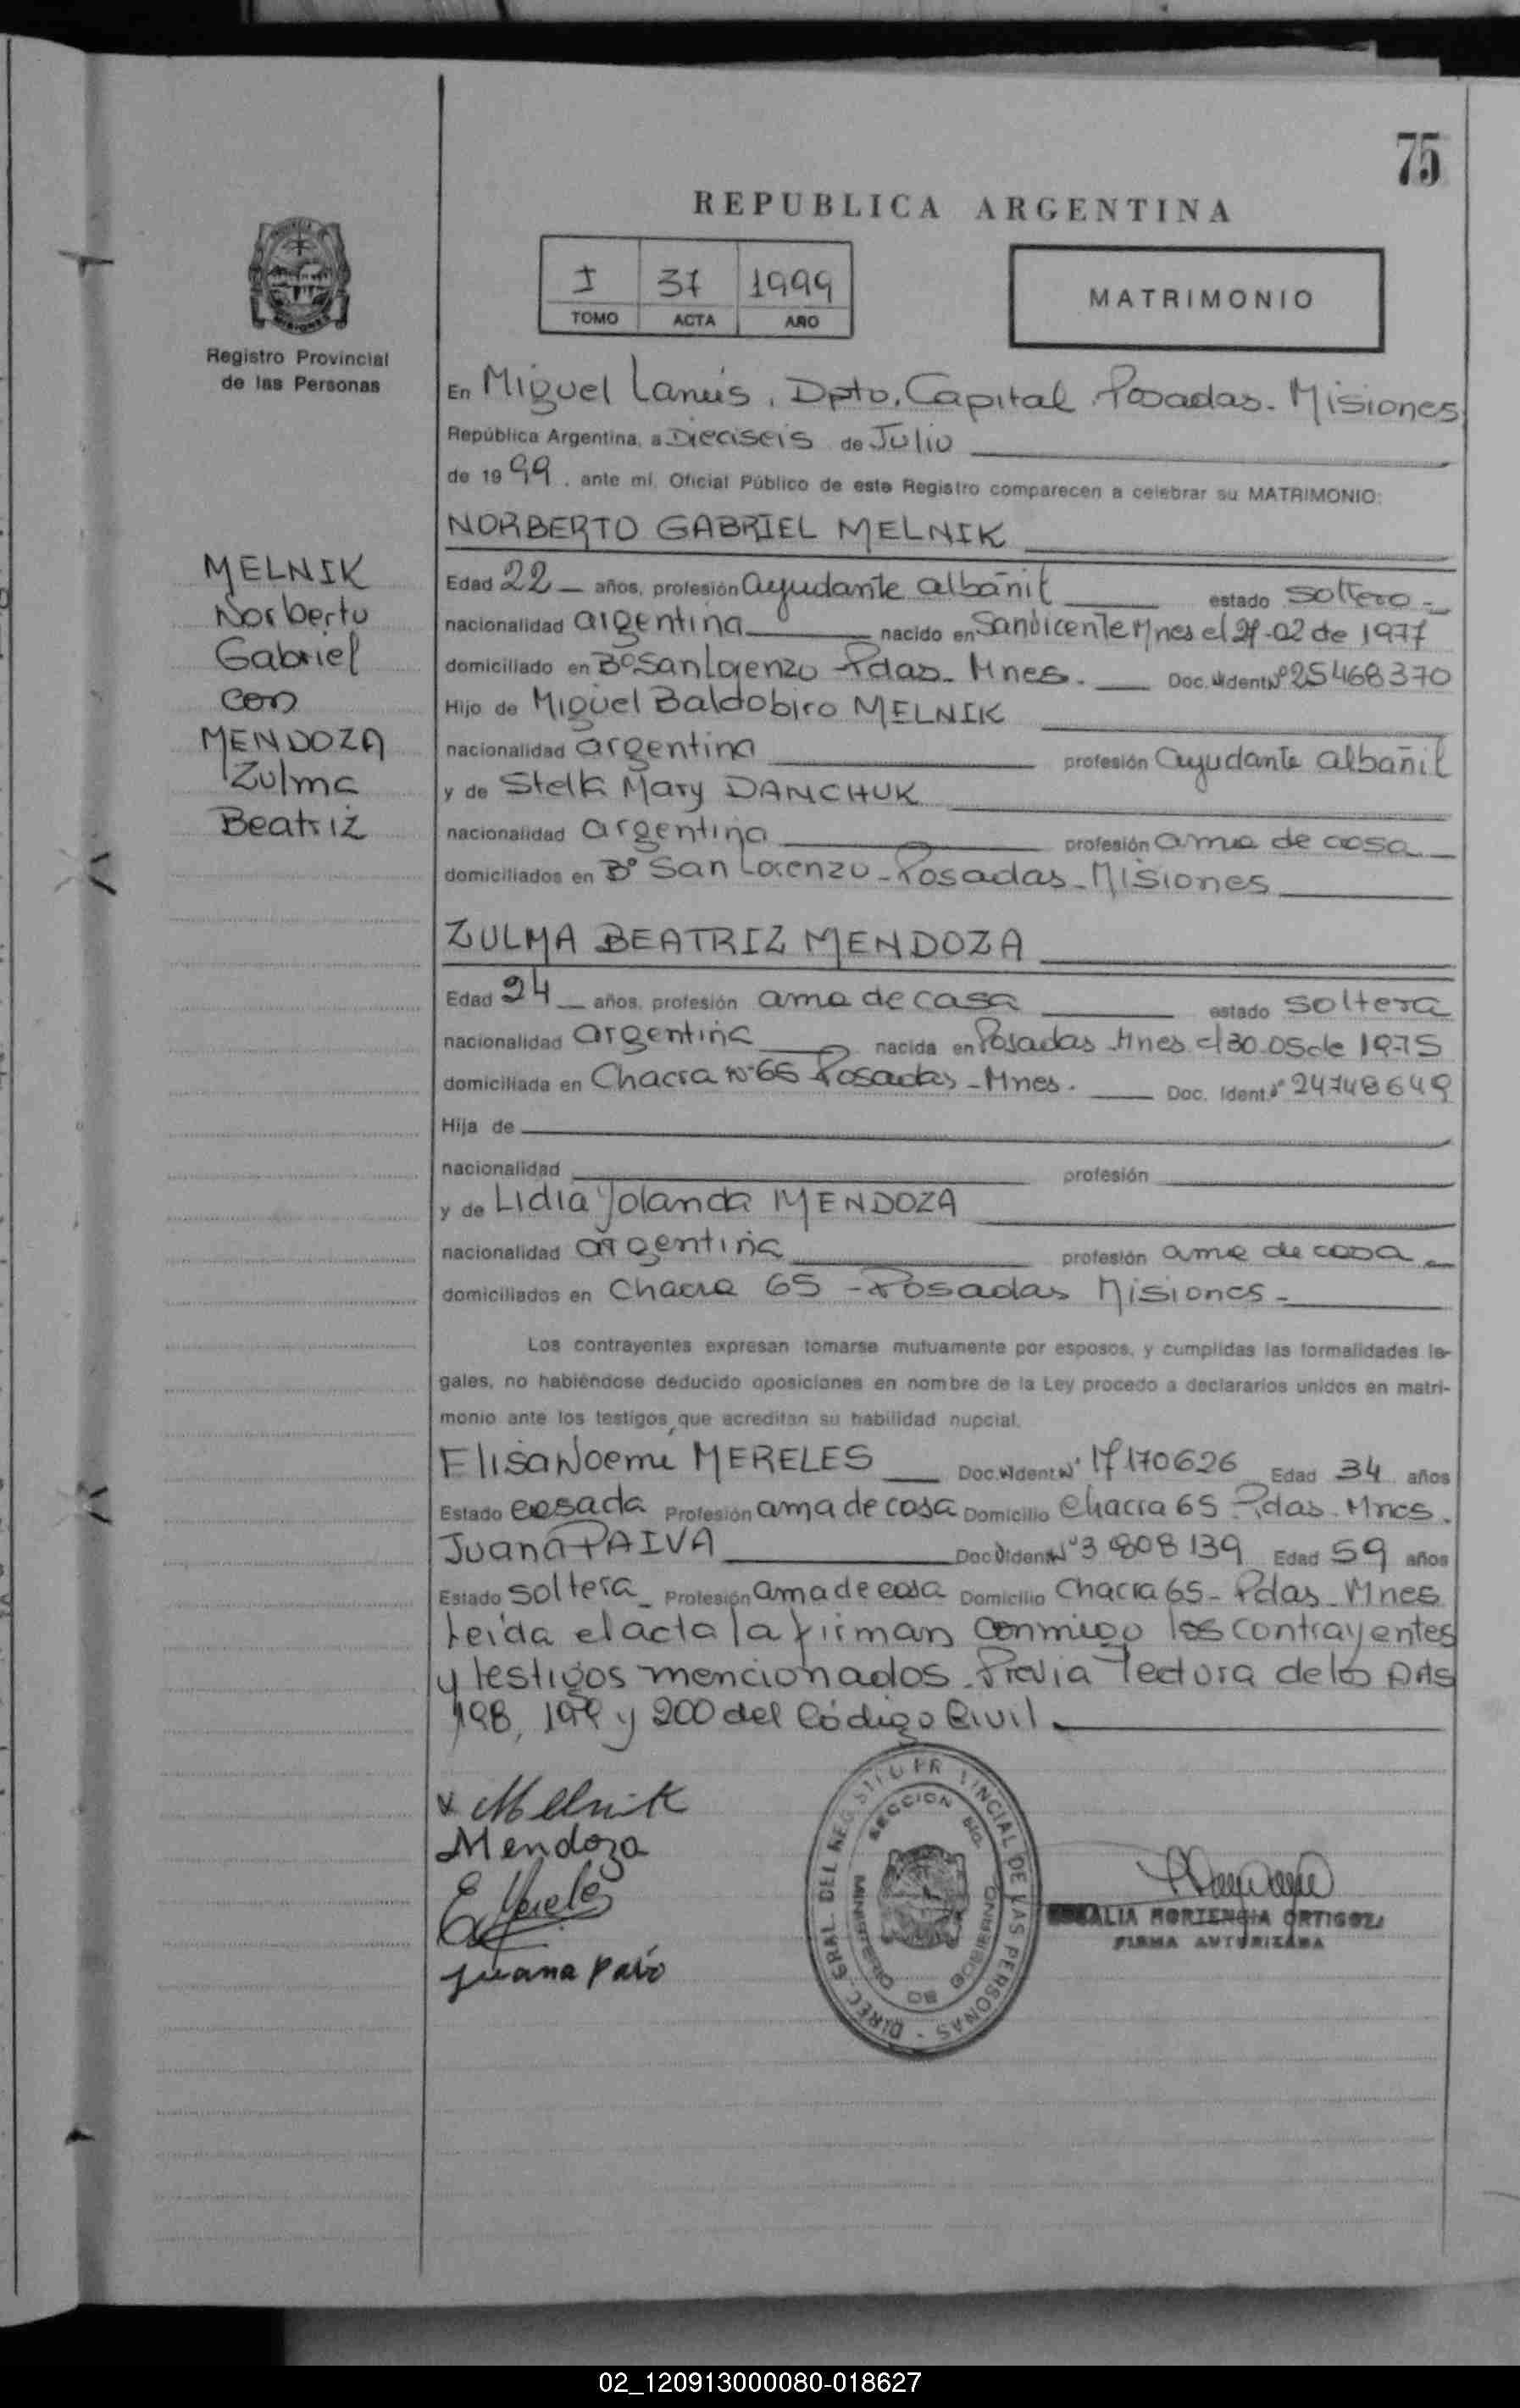 75
REPUBLICA ARGENTINA
I 37 1999
TOMO ACTA AÑO
MATRIMONIO
Registro Provincial
de las Personas
En Miguel Lanús, Dpto. Capital Posadas - Misiones
República Argentina, a Dieciseis de Julio
de 1999, ante mí, Oficial Público de este Registro comparecen a celebrar su MATRIMONIO:
NORBERTO GABRIEL MELNIK
MELNIK
Norberto
Gabriel
con
MENDOZA
Zulma
Beatriz
Edad 22 años, profesión ayudante albañil estado soltero
nacionalidad argentina nacido en San Vicente Mnes el 27-02 de 1977
domiciliado en Bº San Lorenzo Pdas - Mnes. Doc. Ident Nº 25468370
Hijo de Miguel Baldobiro MELNIK
nacionalidad argentina profesión ayudante albañil
y de Stella Mary DANCHUK
nacionalidad argentina profesión ama de casa
domiciliados en Bº San Lorenzo - Posadas - Misiones
ZULMA BEATRIZ MENDOZA
Edad 24 años, profesión ama de casa estado soltera
nacionalidad argentina nacida en Posadas Mnes el 30.05 de 1975
domiciliada en Chacra Nº 65 Posadas - Mnes. Doc. Ident. Nº 24748649
Hija de
nacionalidad profesión
y de Lidia Yolanda MENDOZA
nacionalidad argentina profesión ama de casa
domiciliados en Chacra 65 - Posadas Misiones -
Los contrayentes expresan tomarse mutuamente por esposos, y cumplidas las formalidades le-
gales, no habiéndose deducido oposiciones en nombre de la Ley procedo a declararlos unidos en matri-
monio ante los testigos, que acreditan su habilidad nupcial.
Elisa Noemi MERELES Doc. Ident Nº 17170626 Edad 34 años
Estado casada Profesión ama de casa Domicilio Chacra 65 - Pdas - Mnes.
Juana PAIVA Doc Ident Nº 3808139 Edad 59 años
Estado soltera Profesión ama de casa Domicilio Chacra 65 - Pdas - Mnes
Leída el acta la firman conmigo los contrayentes
y testigos mencionados. Previa lectura de los Arts
198, 199 y 200 del Código Civil.
Melnik
Mendoza
Juana
DIREC. GRAL. DEL REGISTRO PROVINCIAL DE LAS PERSONAS
SECCION
MINISTERIO DE GOBIERNO
HORTENCIA ORTIGOZA
FIRMA AUTORIZADA
02_120913000080-018627